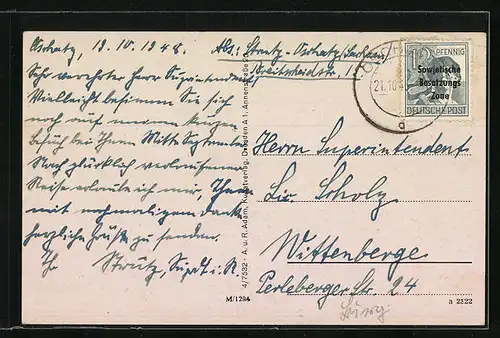 Oschatz, 19.10.1948. Abs.: Strutz-Oschatz/Sachsen
Breitscheidstr. 1
Sehr verehrter Herr Superintendent
Vielleicht besinnen Sie sich
noch auf meinen kurzen
Besuch bei Ihnen Mitte September
Nach glücklich verlaufener
Reise erlaube ich mir, Ihnen
mit nochmaligem Dank
herzliche Grüße zu senden.
Ihr Strutz, Supdt. i. R.
4/7532 - A. u. R. Adam, Kunstverlag, Dresden A 1, Annenstraße
M/1294
12 PFENNIG
Sowjetische
Besatzungs
Zone
DEUTSCHE POST
21.10.4
d
Herrn Superintendent
Lic. Scholz
Wittenberge
Perleberger Str. 24
a 2322